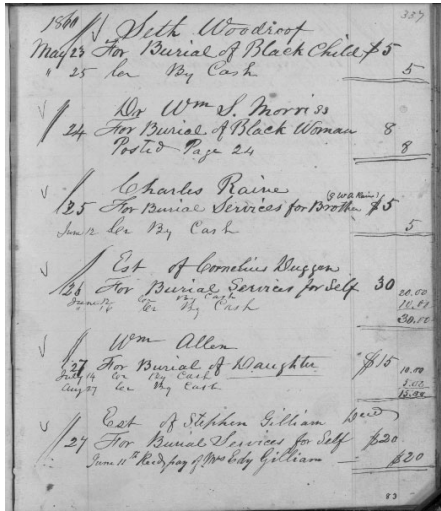 337
1860 Seth Woodroof
May 23 For Burial of Black Child $5
" 25 Cr By Cash 5
Dr Wm S. Morriss
24 For Burial of Black Woman 8
Posted Page 24 8
Charles Raine
25 For Burial Services for Brother $5
June 12 Cr By Cash 5
Est of Cornelius Duggen
26 For Burial Services for Self 30
June 12 Cr By Cash 20.00
" 18 Cr By Cash 10.00
30.00
Wm Allen
27 For Burial of Daughter $15
July 14 Cr By Cash 10.00
Aug 27 Cr By Cash 5.00
15.00
Est of Stephen Gilliam Decd
27 For Burial Services for Self $20
June 11th Recd pay of Mrs Edy Gilliam $20
83